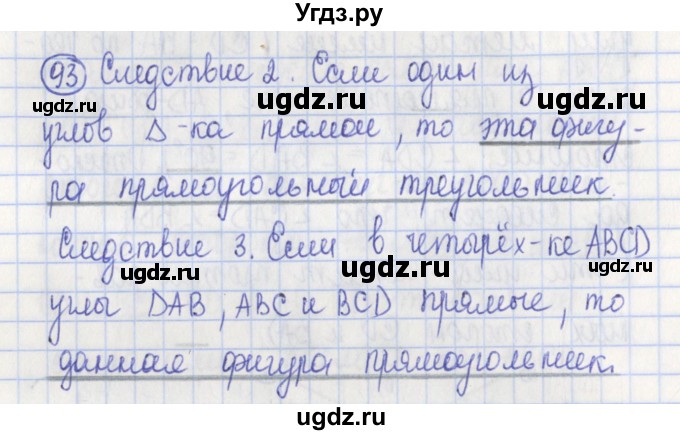 Угдз.ру
93 Следствие 2. Если один из
углов Δ-ка прямой, то эта фигу-
ра прямоугольный треугольник.
Следствие 3. Если в четырёх-ке ABCD
углы DAB, ABC и BCD прямые, то
данная фигура прямоугольник.
ugdz.ru
ugdz.ru
ugdz.ru
ugdz.ru
ugdz.ru
ugdz.ru
ugdz.ru
ugdz.ru
ugdz.ru
ugdz.ru
ugdz.ru